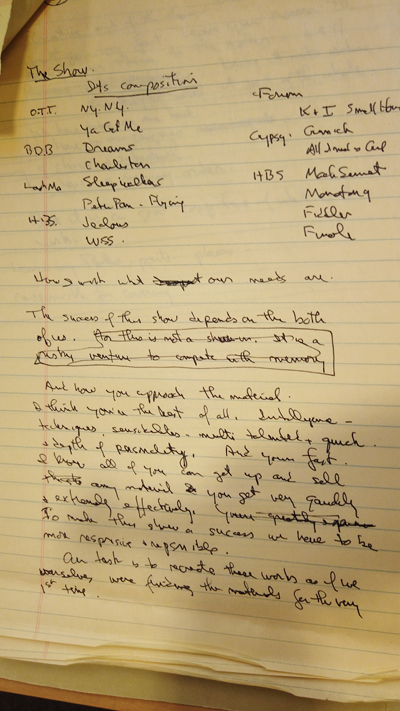 The Show.
Its composition
O.T.T. N.Y. N.Y.
Ya Got Me
BDB Dreams
Charleston
Look Ma Sleepwalker
Peter Pan - Flying
H.B.S. Jealous
WSS.
Forum
K + I Small House
Gypsy. Gimmick
All I need is Girl
HBS Mack Sennet
Monotony
Fiddler
Finale
Now I wish what our needs are.
The success of this show depends on the both
of us. For this is not a show. It is a
venture to compete with memory
And how you approach the material.
I think you're the best of all. Intelligence -
techniques sensibilities - multi talented + quick.
+ depth of personality. And your fast.
I know all of you can get up and sell
any material & you get very quickly
+ extremely effectively.
To make this show a success we have to be
more responsive + responsible.
Our task is to recreate these works as if we
ourselves were finding the materials for the very
1st time.